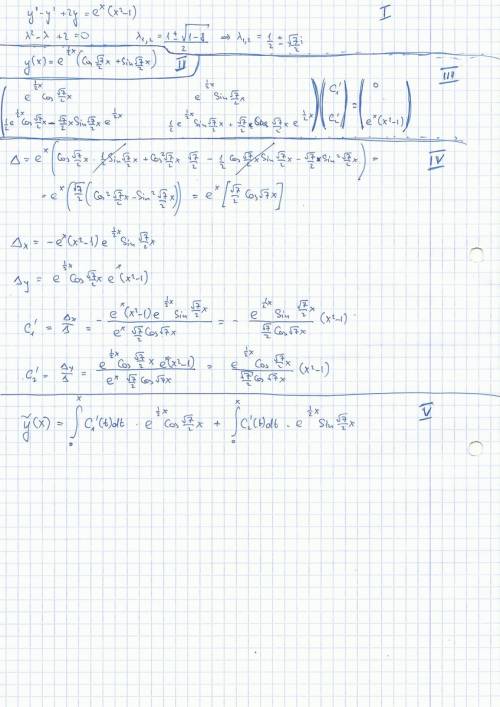 y'' - y' + 2y = eˣ(x²-1)    I
λ² - λ + 2 = 0    λ₁,₂ = (1 ± √(1-8))/2 ⇒ λ₁,₂ = 1/2 ± √7/2 i
y(x) = e^(1/2 x) (Cos √7/2 x + Sin √7/2 x)    II
III
( e^(1/2 x) Cos √7/2 x    e^(1/2 x) Sin √7/2 x ) ( C₁' ) = ( 0 )
( 1/2 e^(1/2 x) Cos √7/2 x - √7/2 x Sin √7/2 x e^(1/2 x)    1/2 e^(1/2 x) Sin √7/2 x + √7/2 x Cos √7/2 x e^(1/2 x) ) ( C₂' ) = ( eˣ(x²-1) )
Δ = eˣ ( Cos √7/2 x · 1/2 Sin √7/2 x + Cos² √7/2 x √7/2 - 1/2 Cos √7/2 x Sin √7/2 x - √7/2 x Sin² √7/2 x ) =    IV
= eˣ ( √7/2 ( Cos² √7/2 x - Sin² √7/2 x ) ) = eˣ [ √7/2 Cos √7 x ]
Δx = -eˣ(x²-1) e^(1/2 x) Sin √7/2 x
Δy = e^(1/2 x) Cos √7/2 x eˣ(x²-1)
C₁' = Δx/Δ = - (eˣ(x²-1) e^(1/2 x) Sin √7/2 x)/(eˣ √7/2 Cos √7 x) = - (e^(1/2 x) Sin √7/2 x)/(√7/2 Cos √7 x) (x²-1)
C₂' = Δy/Δ = (e^(1/2 x) Cos √7/2 x eˣ(x²-1))/(eˣ √7/2 Cos √7 x) = (e^(1/2 x) Cos √7/2 x)/(√7/2 Cos √7 x) (x²-1)
ỹ(x) = ∫₀ˣ C₁'(t)dt · e^(1/2 x) Cos √7/2 x + ∫₀ˣ C₂'(t)dt · e^(1/2 x) Sin √7/2 x    V